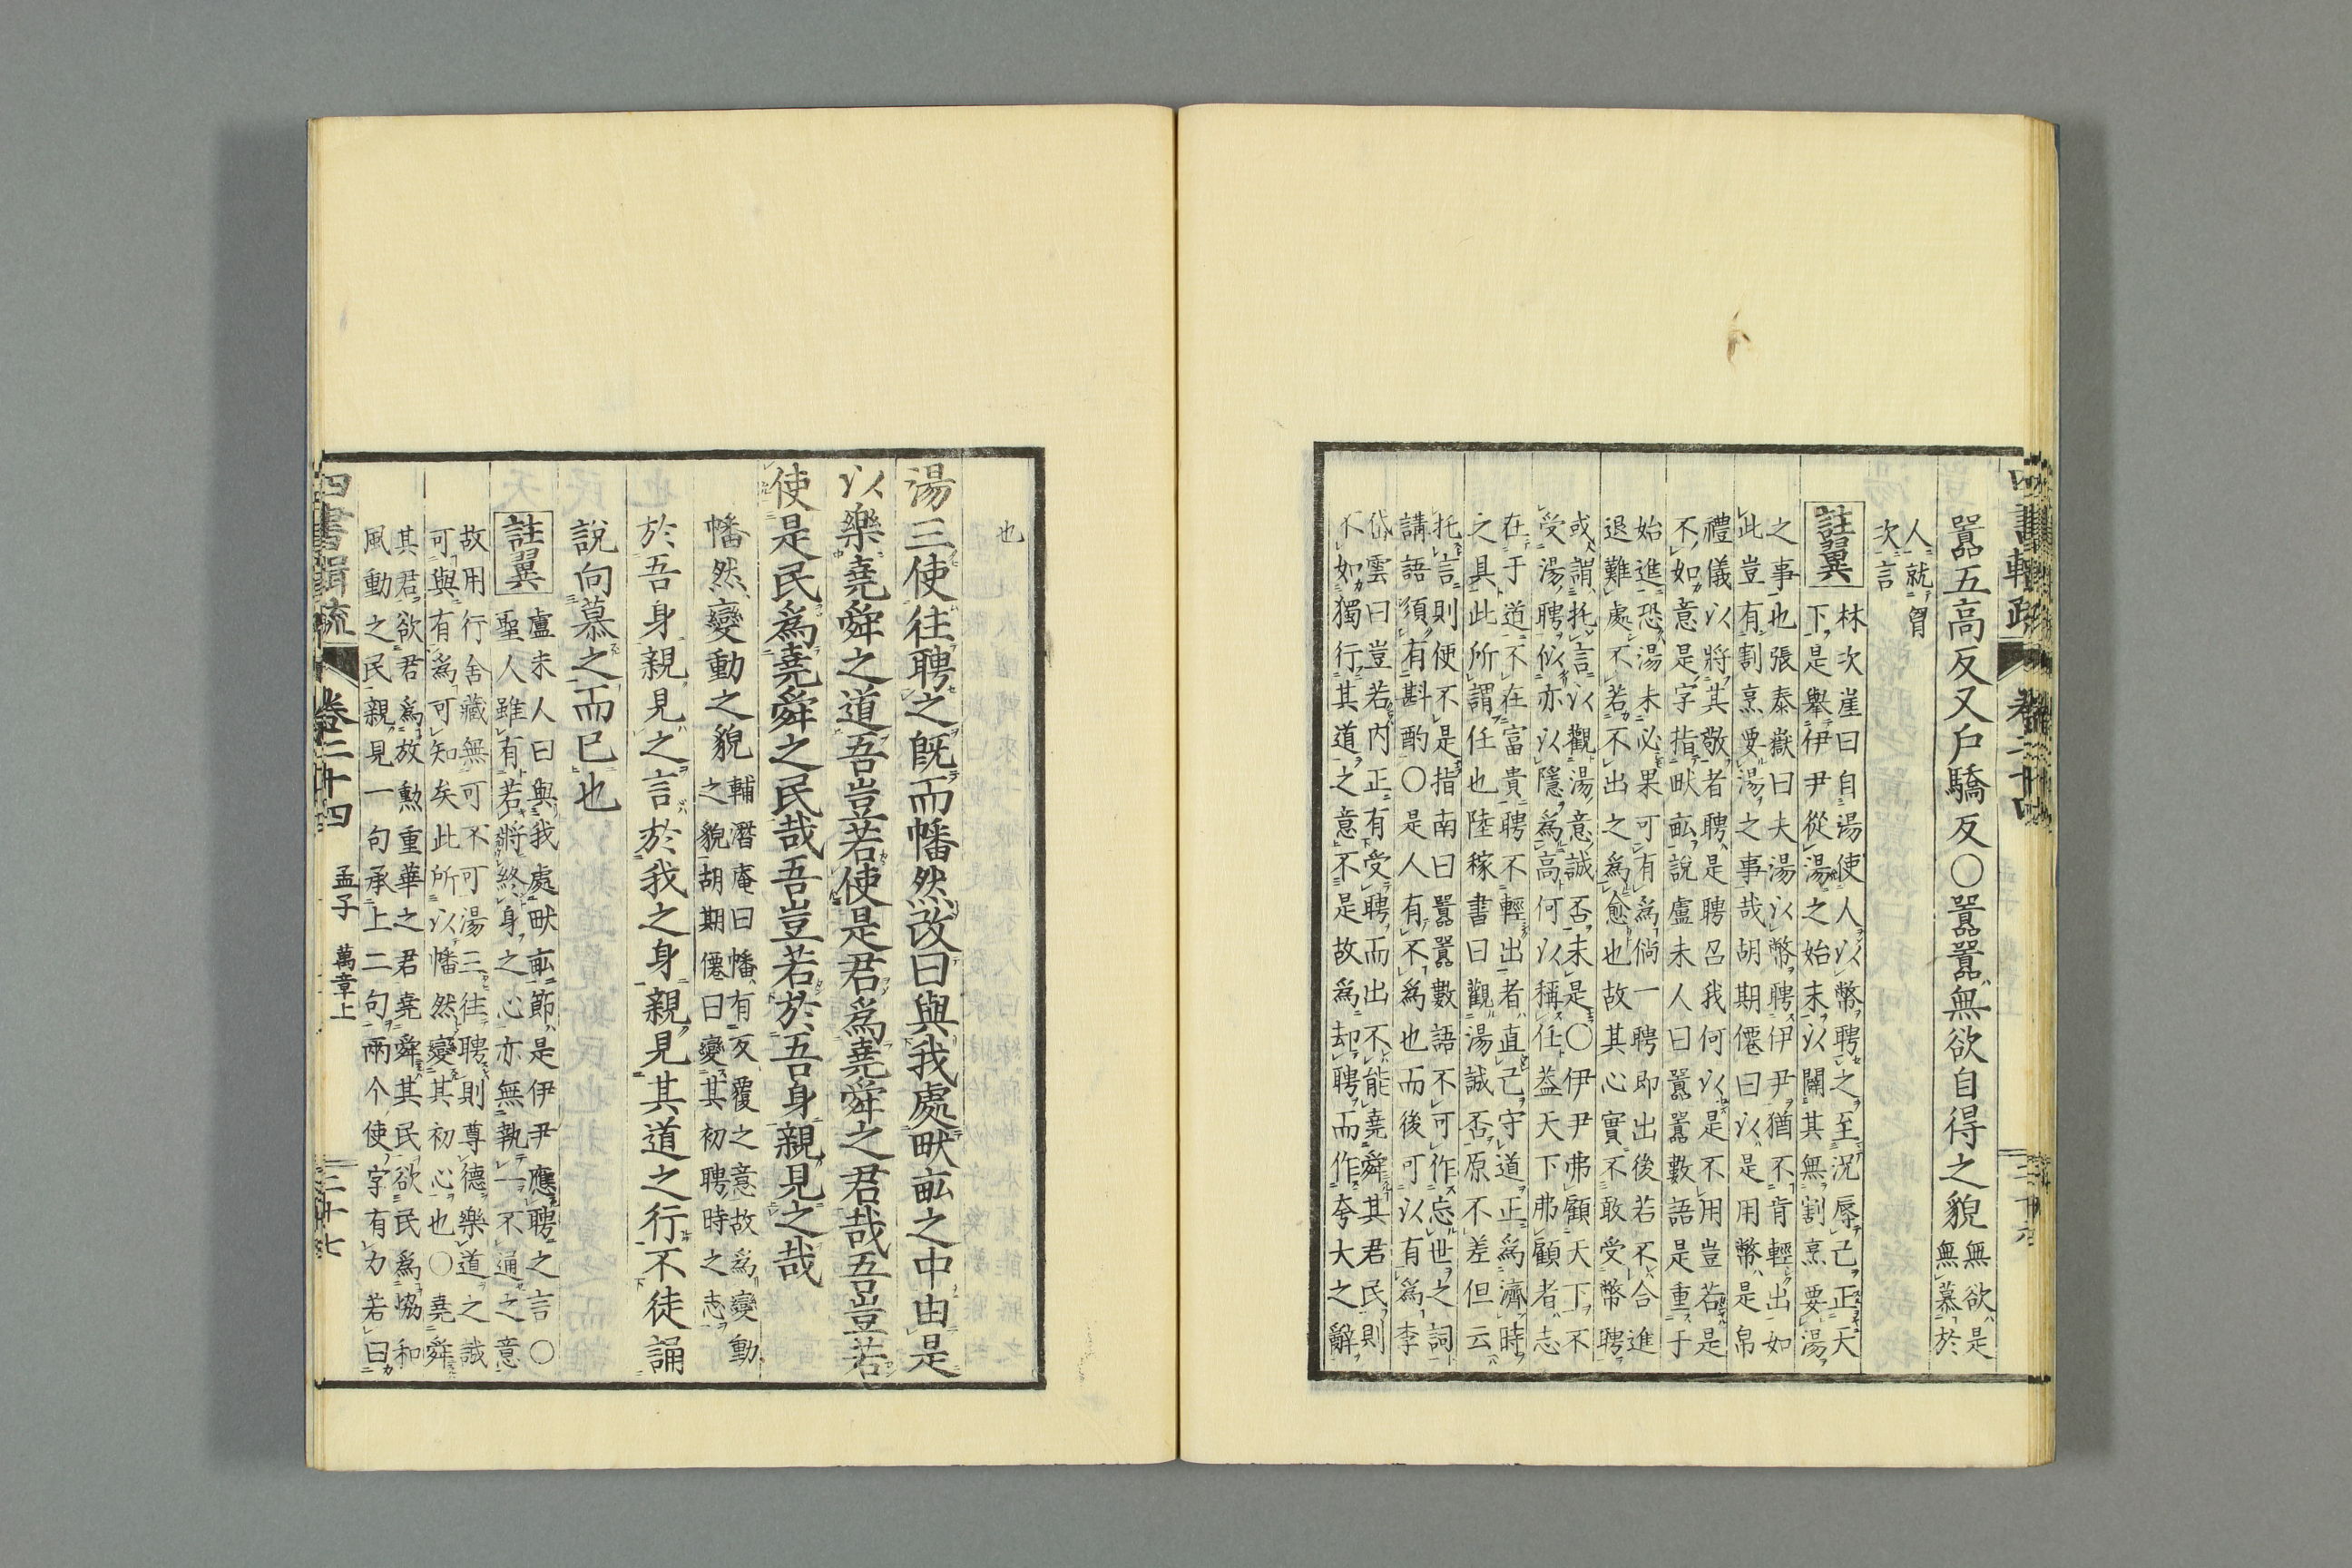 囂五高反又戶驕反〇囂囂無欲自得之貌
無欲是
無慕於
人就胷
次言
註翼
林次崖曰自湯使人以幣聘之至況辱己正天
下是舉伊尹從湯之始末以闢其無割烹要湯
之事也張泰嶽曰夫湯以幣聘伊尹猶不肯輕出如
此豈有割烹要湯之事哉胡期僊曰以是用幣是帛
禮儀以將其敬者聘是聘召我何以是不用豈若是
不如意是字指畎畝說盧未人曰囂囂數語是重于
始進恐湯未必果可有為倘一聘即出後若不合進
退難處不若不出之為愈也故其心實不敢受幣聘
或謂托言以觀湯意誠否未是〇伊尹弗顧天下不
受湯聘似亦以隱為高何以稱任蓋天下弗顧者志
在于道不在富貴聘不輕出者直己守道正為濟時
之具此所謂任也陸稼書曰觀湯誠否原不差但云
托言則便不是指南曰囂囂數語不可作忘世之詞
講語須有斟酌〇是人有不為也而後可以有為李
岱雲曰豈若內正有受聘而出不能堯舜其君民則
不如獨行其道之意不是故為却聘而作夸大之辭
也
湯三使往聘之既而幡然改曰與我處畎畝之中由是
以樂堯舜之道吾豈若使是君為堯舜之君哉吾豈若
使是民為堯舜之民哉吾豈若於吾身親見之哉
幡然變動之貌
輔潛庵曰幡有反覆之意故為變動
之貌胡期僊曰變其初聘時之志
於吾身親見之言於我之身親見其道之行不徒誦
說向慕之而已也
註翼
盧未人曰與我處畎畝節是伊尹應聘之言〇
聖人雖有若將終身之心亦無執一不通之意
故用行舍藏無可不可湯三往聘則尊德樂道之誠
可與有為可知矣此所以幡然變其初心也〇堯舜
其君欲君為放勲重華之君堯舜其民欲民為協和
風動之民親見一句承上二句兩个使字有力若曰
四書輯疏 卷二十四 孟子 萬章上 三十七